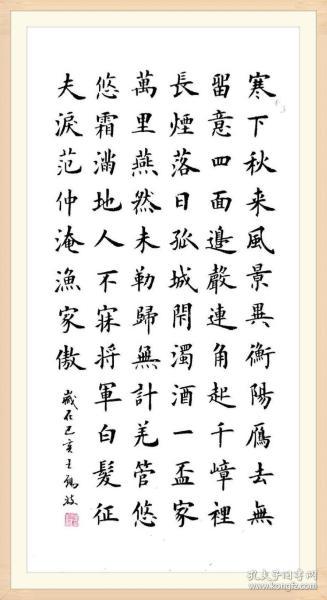 寒下秋来風景異衡陽鴈去無
留意四面邊聲連角起千嶂裡
長煙落日孤城閉濁酒一盃家
萬里燕然未勒歸無計羌管悠
悠霜滿地人不寐將軍白髮征
夫淚范仲淹漁家傲
歲在己亥王
孔夫子旧书网
www.kongfz.com